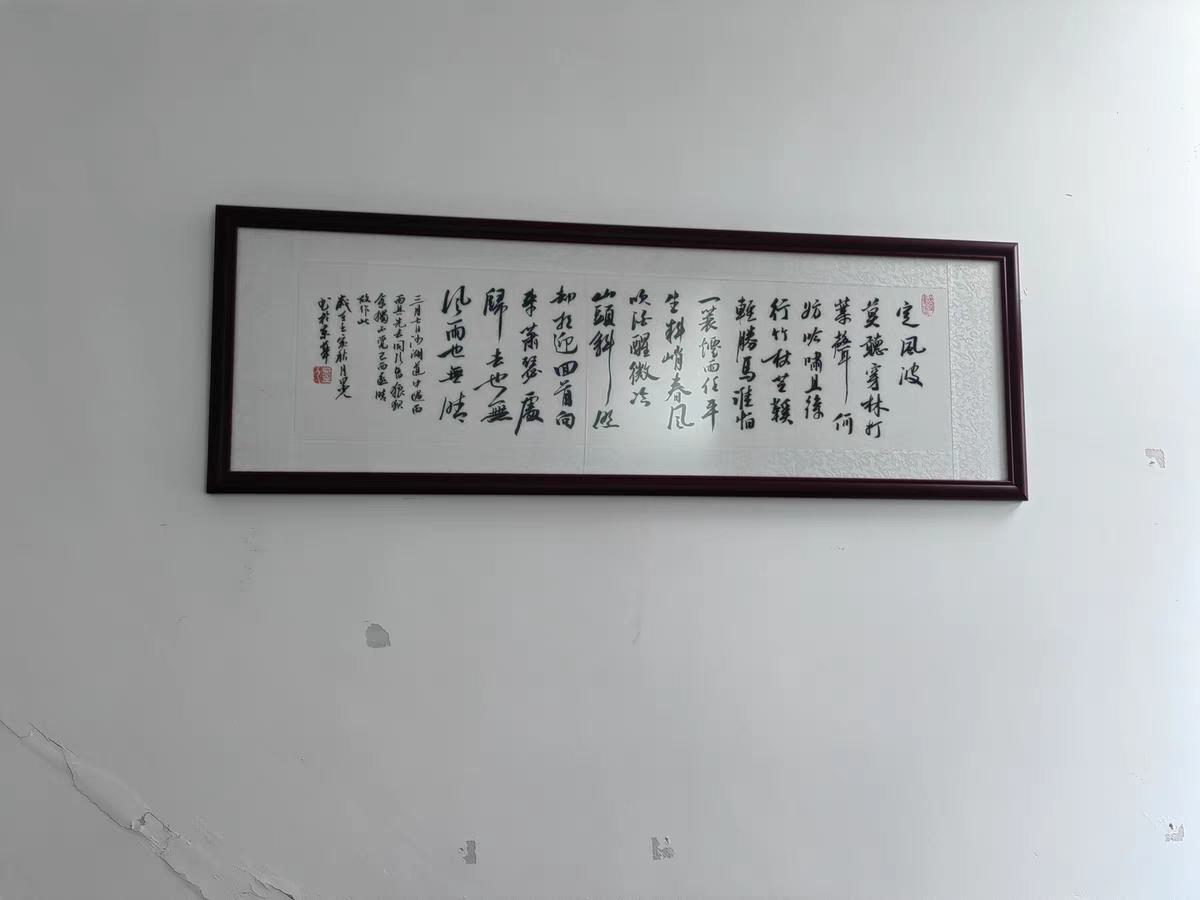 定風波
莫聽穿林打
葉聲何
妨吟嘯且徐
行竹杖芒鞋
輕勝馬誰怕
一蓑煙雨任平
生料峭春風
吹酒醒微冷
山頭斜照
却相迎回首向
來蕭瑟處
歸去也無
風雨也無晴
三月七日沙湖道中遇雨
雨具先去同行皆狼狽
余獨不覺已而遂晴
故作此